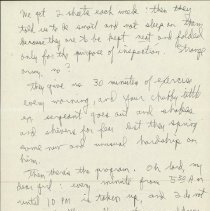 We get 2 sheets each week : then they
told us to be small and not sleep on them
because they are to be kept neat and folded
only for the purpose of inspection. Strange
army, no?
They give us 30 minutes of exercise
every morning, and your chubby little
sergeant goes out and shakes
and shivers for fear lest they spring
some new and unusual hardship on
him.
Then there's the program. Oh Lord, my
dear girl : every minute from 5:30 A.M.
until 10 PM is taken up, and I do not